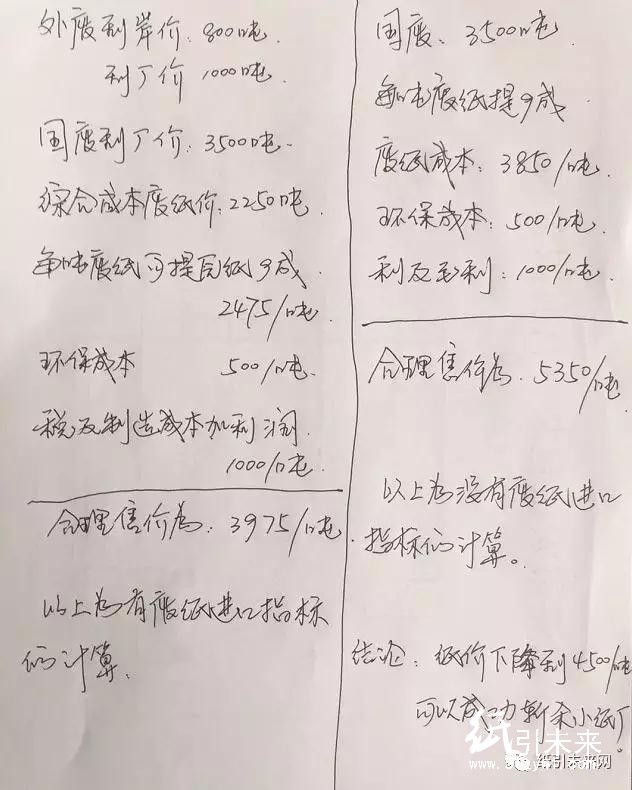 外废到岸价:800吨
到厂价 1000吨.
国废到厂价:3500吨.
综合成本废纸价:2250吨.
每吨废纸可提瓦纸9成.
2475/吨
环保成本 500/吨.
税及制造成本加利润.
1000/吨.
合理售价为:3975/吨.
以上为有废纸进口指标
的计算.
国废:3500吨.
每吨废纸提9成
废纸成本:3850/吨.
环保成本:500/吨.
利及毛利:1000/吨.
合理售价为:5350/吨.
以上为没有废纸进口
指标的计算。
结论:纸价下降到4500/吨
可以成功斩杀小纸厂!
纸引未来
纸引未来网